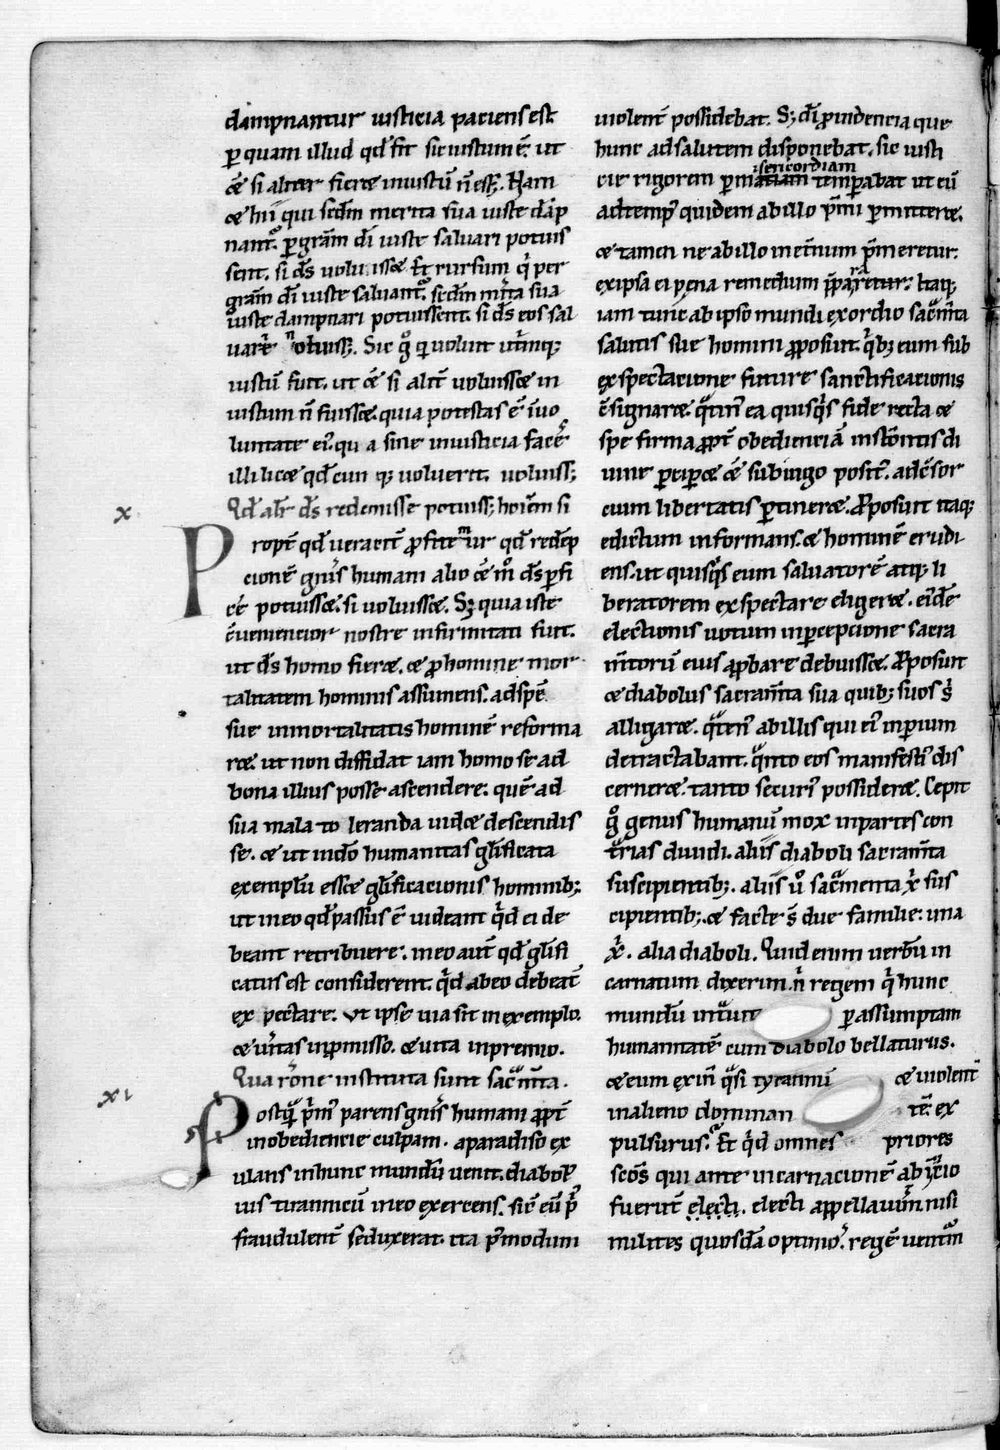 dampnantur iusticia paciens est
ꝑ quam illud qđ fit sic iustum ē. ut
&̄ si alit̄ fieret iniustū ñ ess&. Nam
& hii qui scđm merita sua iuste dāp
nant̉. ꝑ grām dī iuste saluari potuis
sent. si d̄s uoluiss&. Et rursum q̇ per
grām dī iuste saluant̉. scđm mīta sua
iuste dampnari potuissent. si d̄s eos sal
uare noluiss&. Sic ḡ q uoluit utrūq;
iustū fuit. ut &̄ si alit̄ uoluiss& in
iustum ñ fuiss&. quia potestas ē īuo
luntate ei᾽. qu a sine iniusticia facẽ
illi lic& qđ cun q; uoluerit. uoluiss&;
Qđ alit̄ d̄s redemisse potuiss& hoīem si
x
Propt̄ qđ ueracit̄ ꝓfitemur qđ redēp
cionē gn̄is humani alio &̄ m̊ d̄s ꝑfi
cē potuiss&. si uoluiss&. S; quia iste
cūenientior nostre infirmitati fuit.
ut d̄s homo fier&. & ꝓ homine mor
talitatem hominis assumens. ad spē
sue inmortalitatis hominē reforma
r&. ut non diffidat iam homo se ad
bona illius posse ascendere: quē ad
sua mala to leranda uid& descendis
se. & ut indō humanitas glificata
exemplū ess& glificacionis hominib;
ut in eo qđ passus ē uideant q̇d ei de
beant retribuere. in eo aut̄ qđ glifi
catus est considerent. q̇d ab eo debeāt
ex pectare. Vt ipse uia sit in exemplo.
& ūitas in ꝓmisso. & uita in premio.
Qua rōne instituta sunt sacͣm̄ta.
xi
Postq̄ p̄m᾽ parens gn̄is humani ꝓpt̄
inobediencie culpam. a paradiso ex
ulans in hunc mundū uenit. diabol᾽
ius tirannicū in eo exercens. sic̄ eū p̾
fraudulent̄ seduxerat. ita p̾modum
uiolent̄ possidebat. S; dī ꝓuidencia que
hunc ad salutem disponebat. sic iusti
isericordiam
cie rigorem per matiam temperabat ut eū
ad temp᾽ quidem ab illo p̄mi ꝑmitter&.
& tamen ne ab illo in et̄num p̄meretur.
ex ipsa ei pena remedium p̄pararetur; Itaq;
iam tunc ab ipso mundi exordio sacͣm̄ta
salutis sue homini ꝓposuit. q̇b; eum sub
exspectacione future sanctificacionis
c̄signar&. q̄tin᾽ ea quisq̇s fide recta &
spe firma ꝓpt̄ obedienciā institutis di
uine ꝑcip& &̄ sub iugo posit᾽. ad c̄sor
cium libertatis ꝑtiner&. Ꝓposuit itaq;
edictum informans. & hominē erudi
ens. ut quisq̇s eum saluatorē atq; li
beratorem exspectare eliger&. ei᾽de
electionis uotum in ꝑcepcione sacra
m̄torū eius apꝓbare debuiss&. Ꝓposuit
& diabolus sacram̄ta sua quib; suos s̄
alligar&. q̄ten᾽ ab illis qui ei᾽ inꝑium
detractabant. q̄nto eos manifesti᾽ dis
cerner&. tanto securi᾽ possider&. Cepit
ḡ genus humanū mox in partes con
t̄rias diuidi. aliis diaboli sacram̄ta
suscipientib;. aliis ů sacͣmenta x̄ sus
cipientib;. & facte s̄ due familie: una
x̄. alia diaboli. Quid enim uerbū in
carnatum dixerim. ñ regem q̇ hunc
mundū intͣuit ꝑ assumptam
humanitatē cum diabolo bellaturus.
& eum exiñ q̄si tyrannū & uiolent̄
in alieno dominan tē: ex
pulsurus. Et q̇d omnes priores
sc̄os qui ante incarnacionē ab inicio
fuerūt electi. electi appellauim̉. nisi
milites quosdā optimo᾽. regē uentur̄